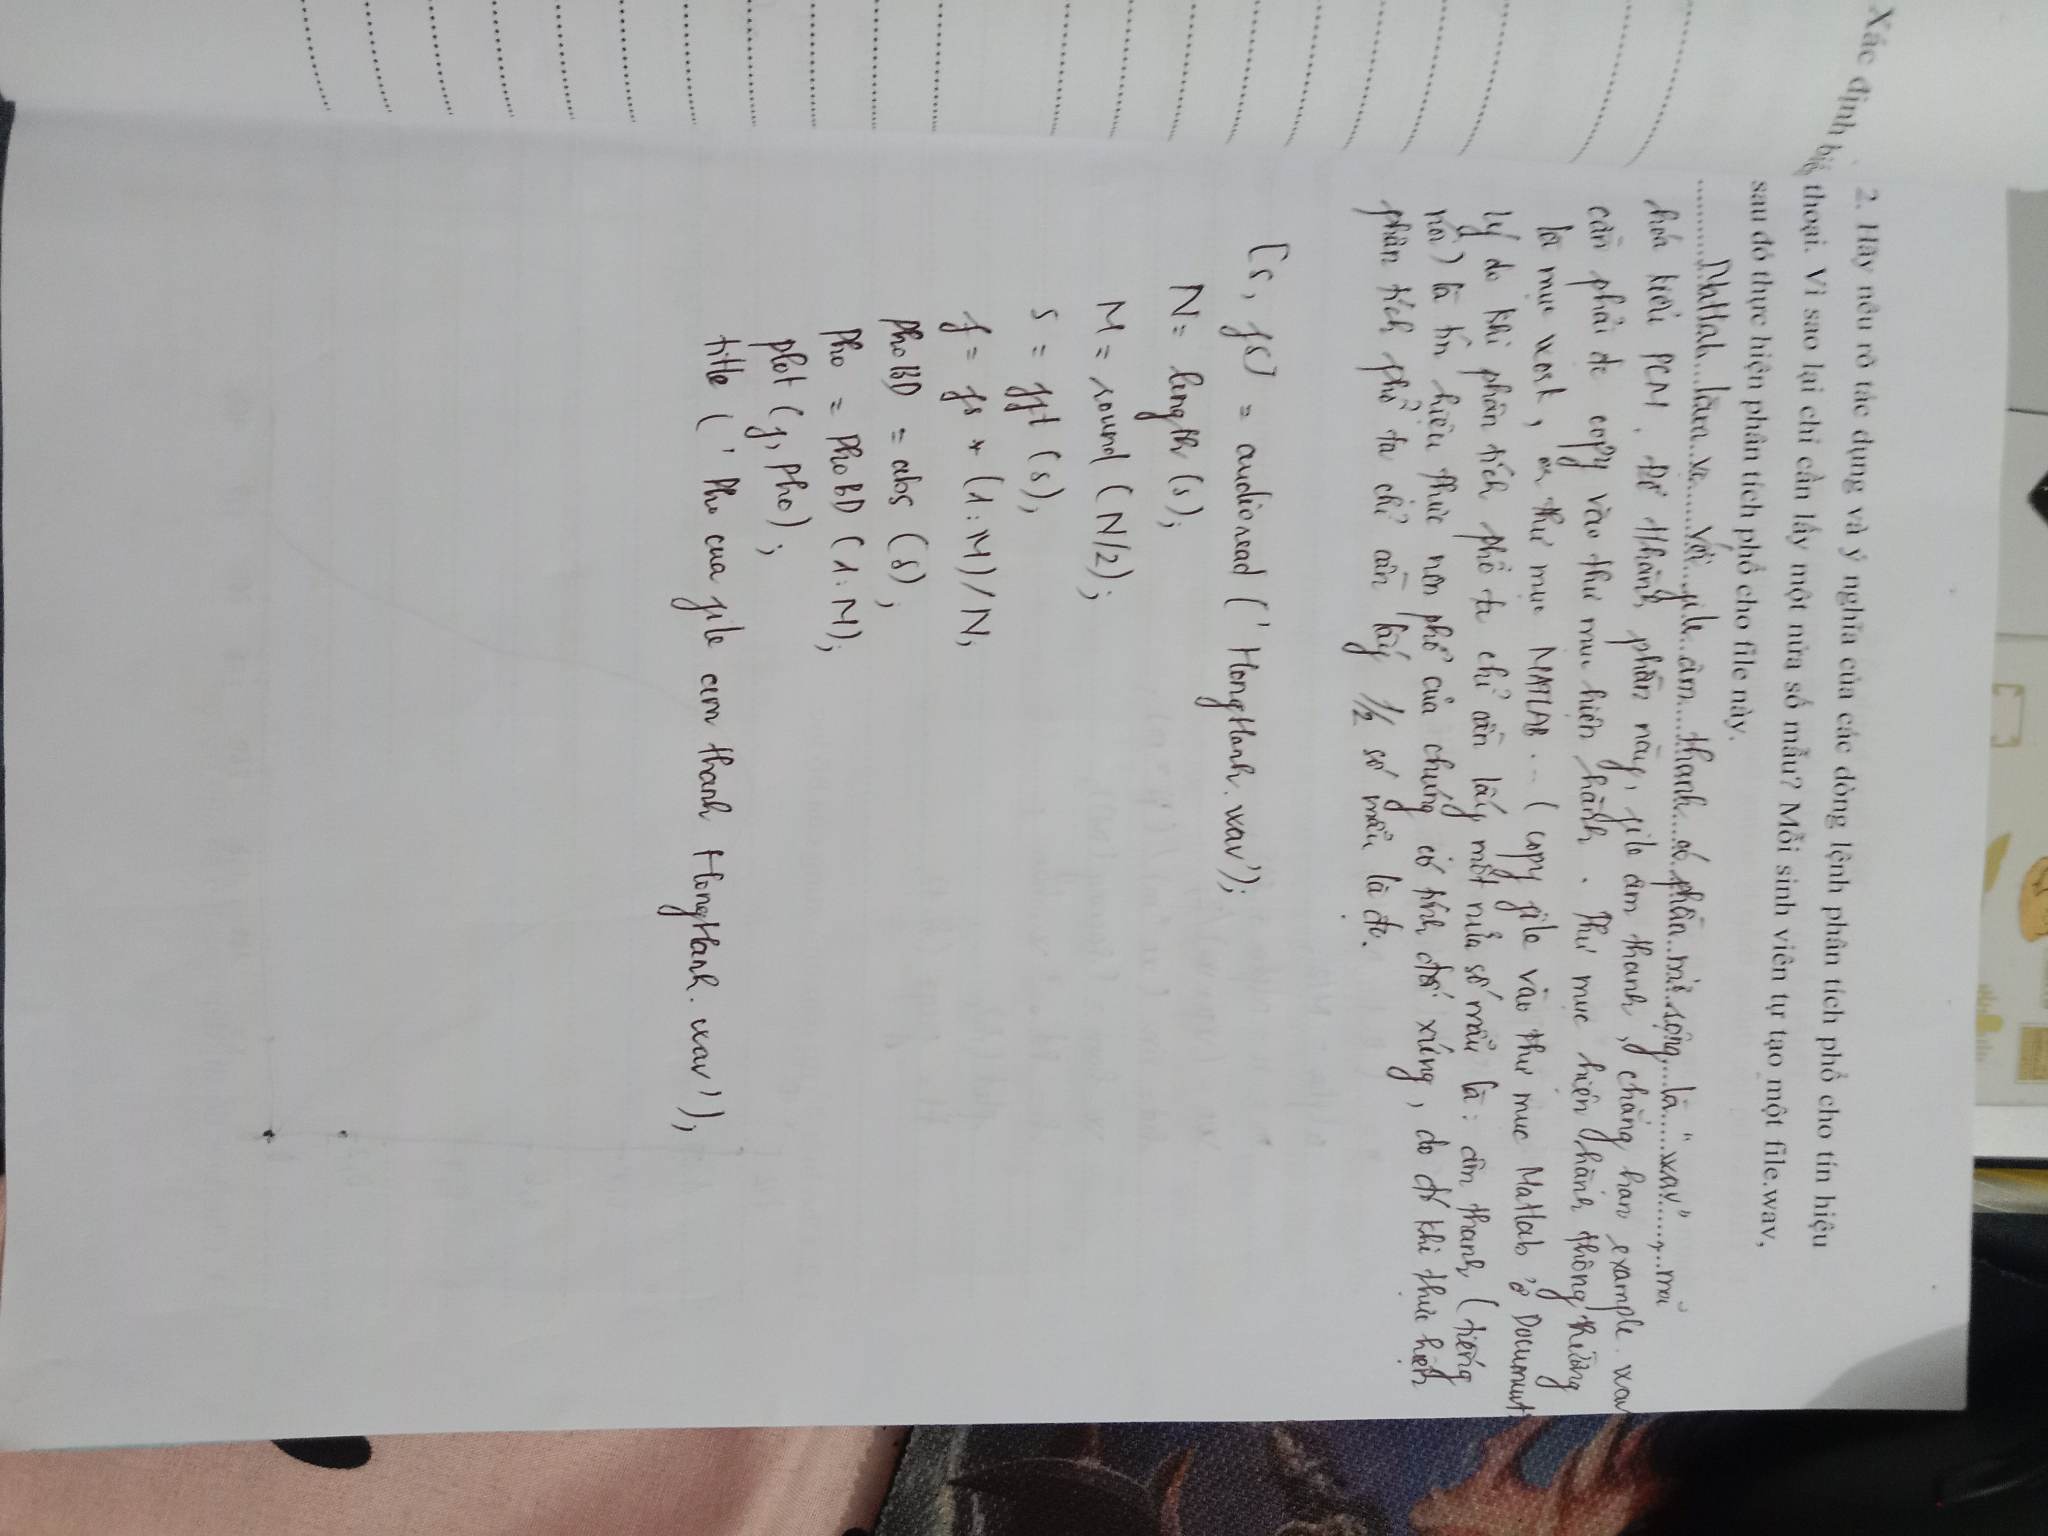 Xác định biê
2. Hãy nêu rõ tác dụng và ý nghĩa của các dòng lệnh phân tích phổ cho tín hiệu
thoại. Vì sao lại chỉ cần lấy một nửa số mẫu? Mỗi sinh viên tự tạo một file.wav,
sau đó thực hiện phân tích phổ cho file này.
Matlab làm vc với file âm thanh có phần mở rộng là "wav", mã
hóa kiểu PCM. Để thành phần này, file âm thanh, chẳng hạn example.wav
cần phải đc copy vào thư mục hiện hành. Thư mục hiện hành thông thường
là mục work, thư mục MATLAB... (copy file vào thư mục Matlab ở Document
lý do khi phân tích phổ ta chỉ cần lấy một nửa số mẫu là: âm thanh (tiếng
nói) là tín hiệu thực nên phổ của chúng có tính đối xứng, do đó khi thực hiện
phân tích phổ ta chỉ cần lấy 1/2 số mẫu là đc.
[s, fs] = audioread ('HongHanh.wav');
N = length (s);
M = round (N/2);
S = fft (s);
f = fs * (1:M)/N;
PhoBD = abs (S);
Pho = PhoBD (1:M);
plot (f, Pho);
title ('Pho cua file am thanh HongHanh.wav');